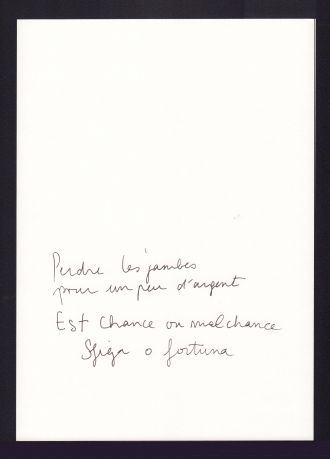 Perdre les jambes
pour un peu d'argent
Est chance ou malchance
Sfiga o fortuna